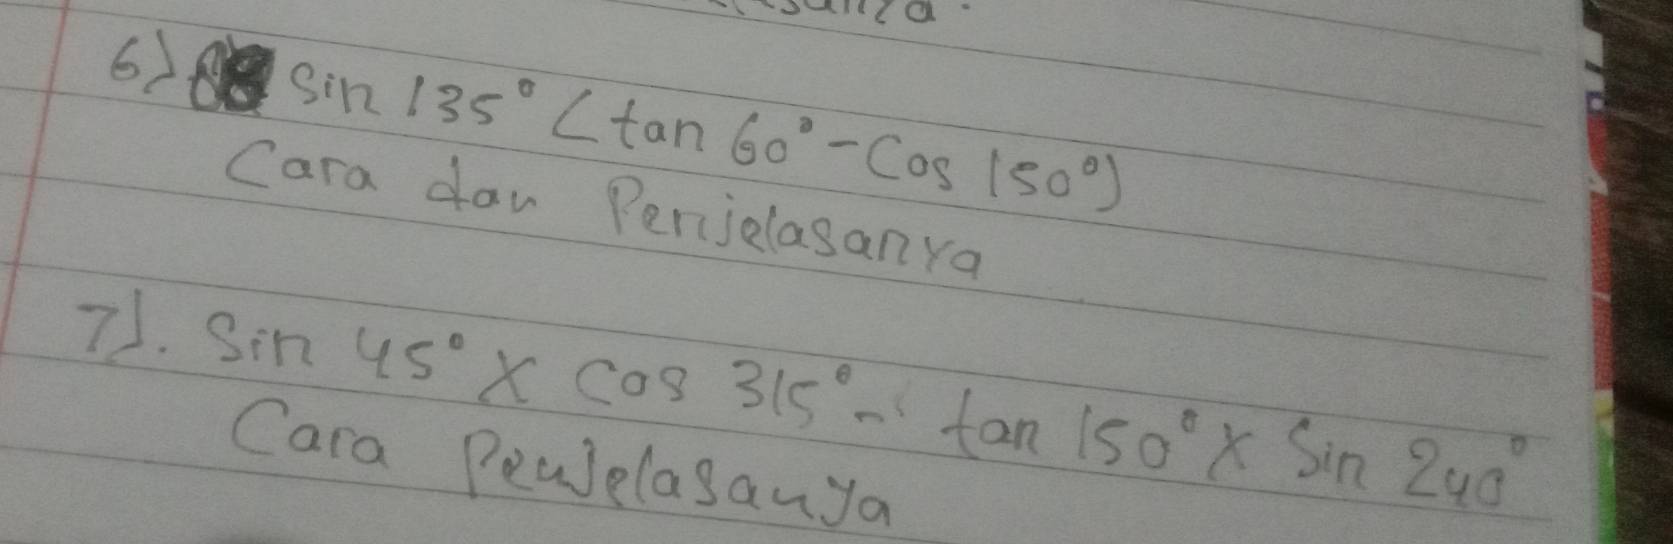 6) Sin 135° (tan 60° - Cos 150°)
Cara dan Penjelasanya
7). Sin 45° X Cos 315° - tan 150° X Sin 240°
Cara Penjelasanya